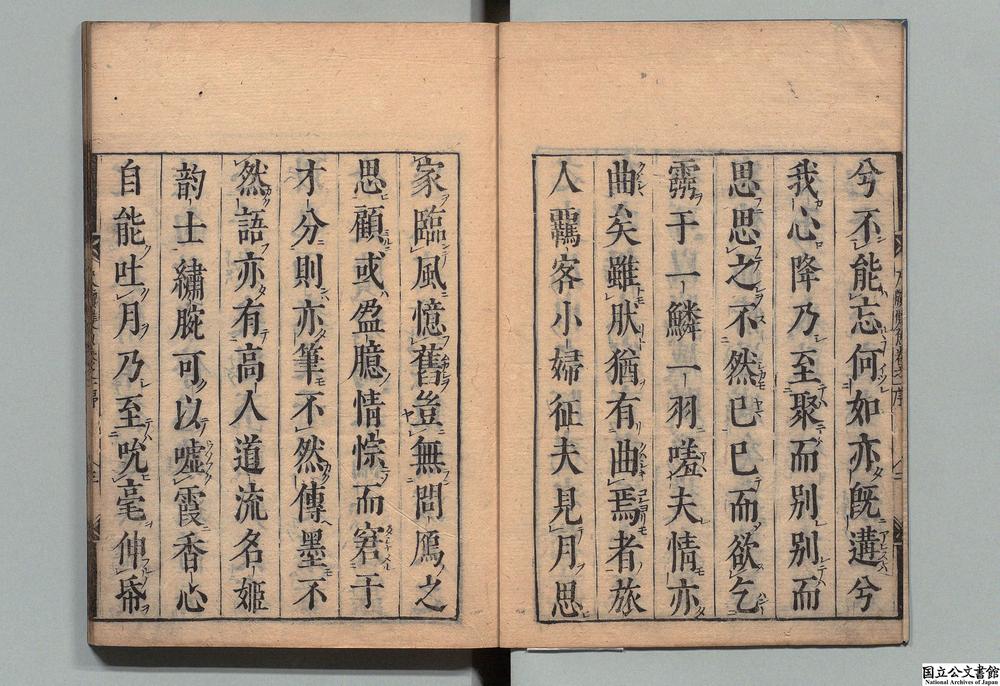 兮不能忘何如亦旣遘兮
我心降乃至聚而別別而
思思之不然已已而欲乞
靈于一鱗一羽嗟夫情亦
曲矣雖狀猶有曲焉者旅
人羈客小婦征夫見月思
家臨風憶舊豈無問鴈之
思顧或盈臆情悰而窘于
才分則亦筆不然傳墨不
然語亦有高人道流名姬
韵士繡腕可以噓霞香心
自能吐月乃至吮毫伸帋
国立公文書館
National Archives of Japan